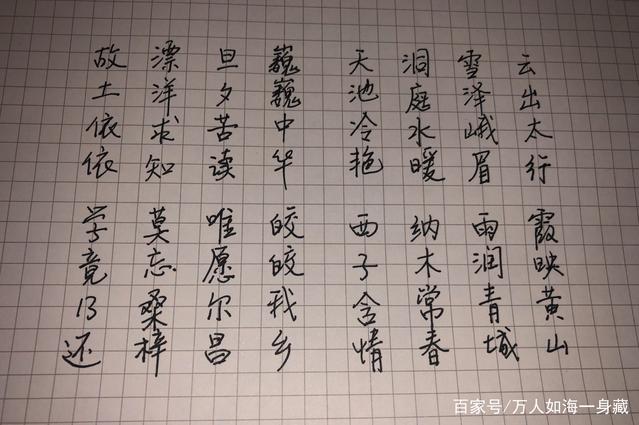 云出太行 霞映黄山
雪泽峨眉 雨润青城
洞庭水暖 纳木常春
天池冷艳 西子含情
巍巍中华 皎皎我乡
旦夕苦读 唯愿尔昌
漂洋求知 莫忘桑梓
故土依依 学竟乃还
百家号/万人如海一身藏